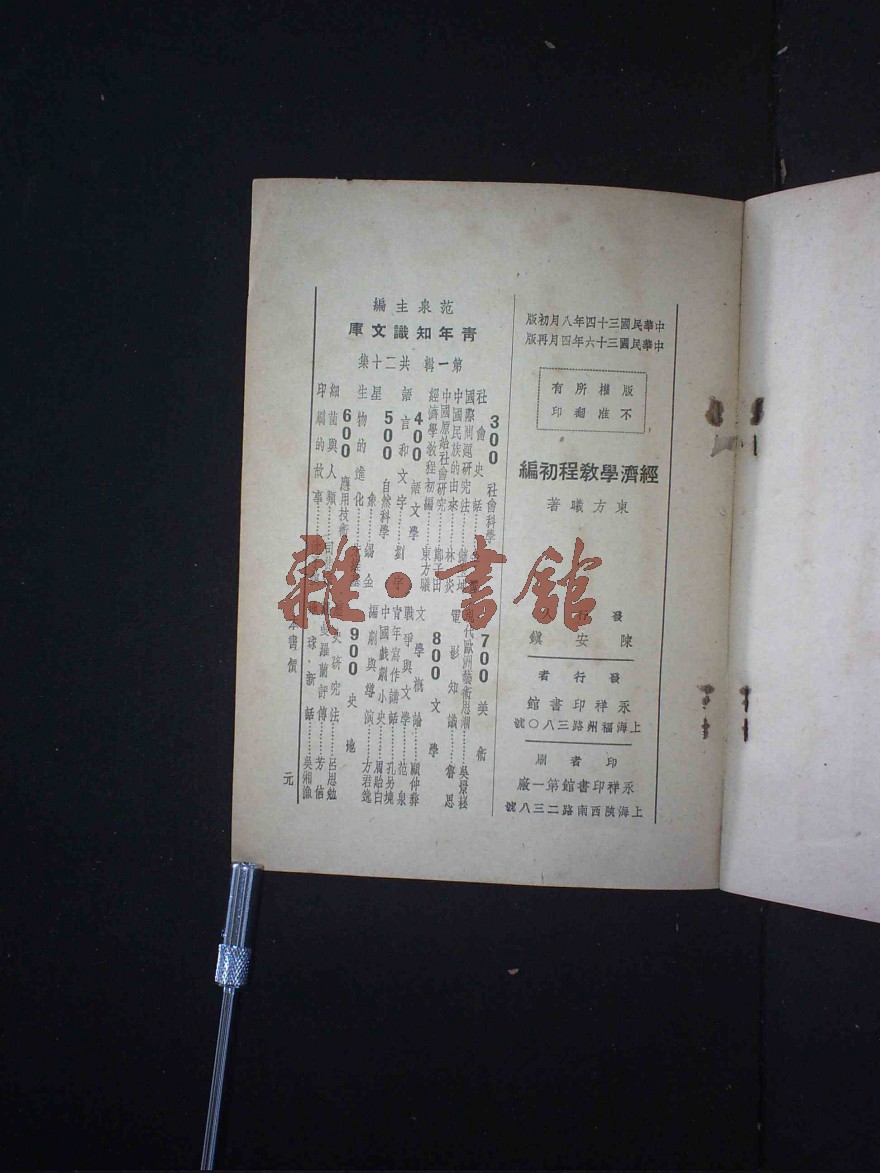 中華民國三十四年八月初版
中華民國三十六年四月再版
版權所有
不准翻印
經濟學教程初編
東方曦著
發行
陳安鎮
發行者
永祥印書館
上海福州路三八〇號
印刷者
永祥印書館第一廠
上海陝西南路二三八號
范泉主編
青年知識文庫
第一輯 共二十集
300 社會科學
社會史話
國際問題研究法
中國民族的由來 林炎
中國原始社會研究 鄭子田
經濟學教程初編 東方曦
400 語文學
語言和文字 劉宇
500 自然科學
星象 錫金
生物的進化
600 應用技術
細菌與人類
印刷的故事
700 美術
現代歐洲藝術思潮 吳景崧
電影知識 魯思
800 文學
文學概論 顧仲彝
戰爭與文學 范泉
青年寫作講話 孔另境
中國戲劇小史 周貽白
編劇與導演 方君逸
900 史地
歷史研究法 呂思勉
曼羅蘭評傳 芳信
球新話 吳湘漁
本書價 元
雜·書館